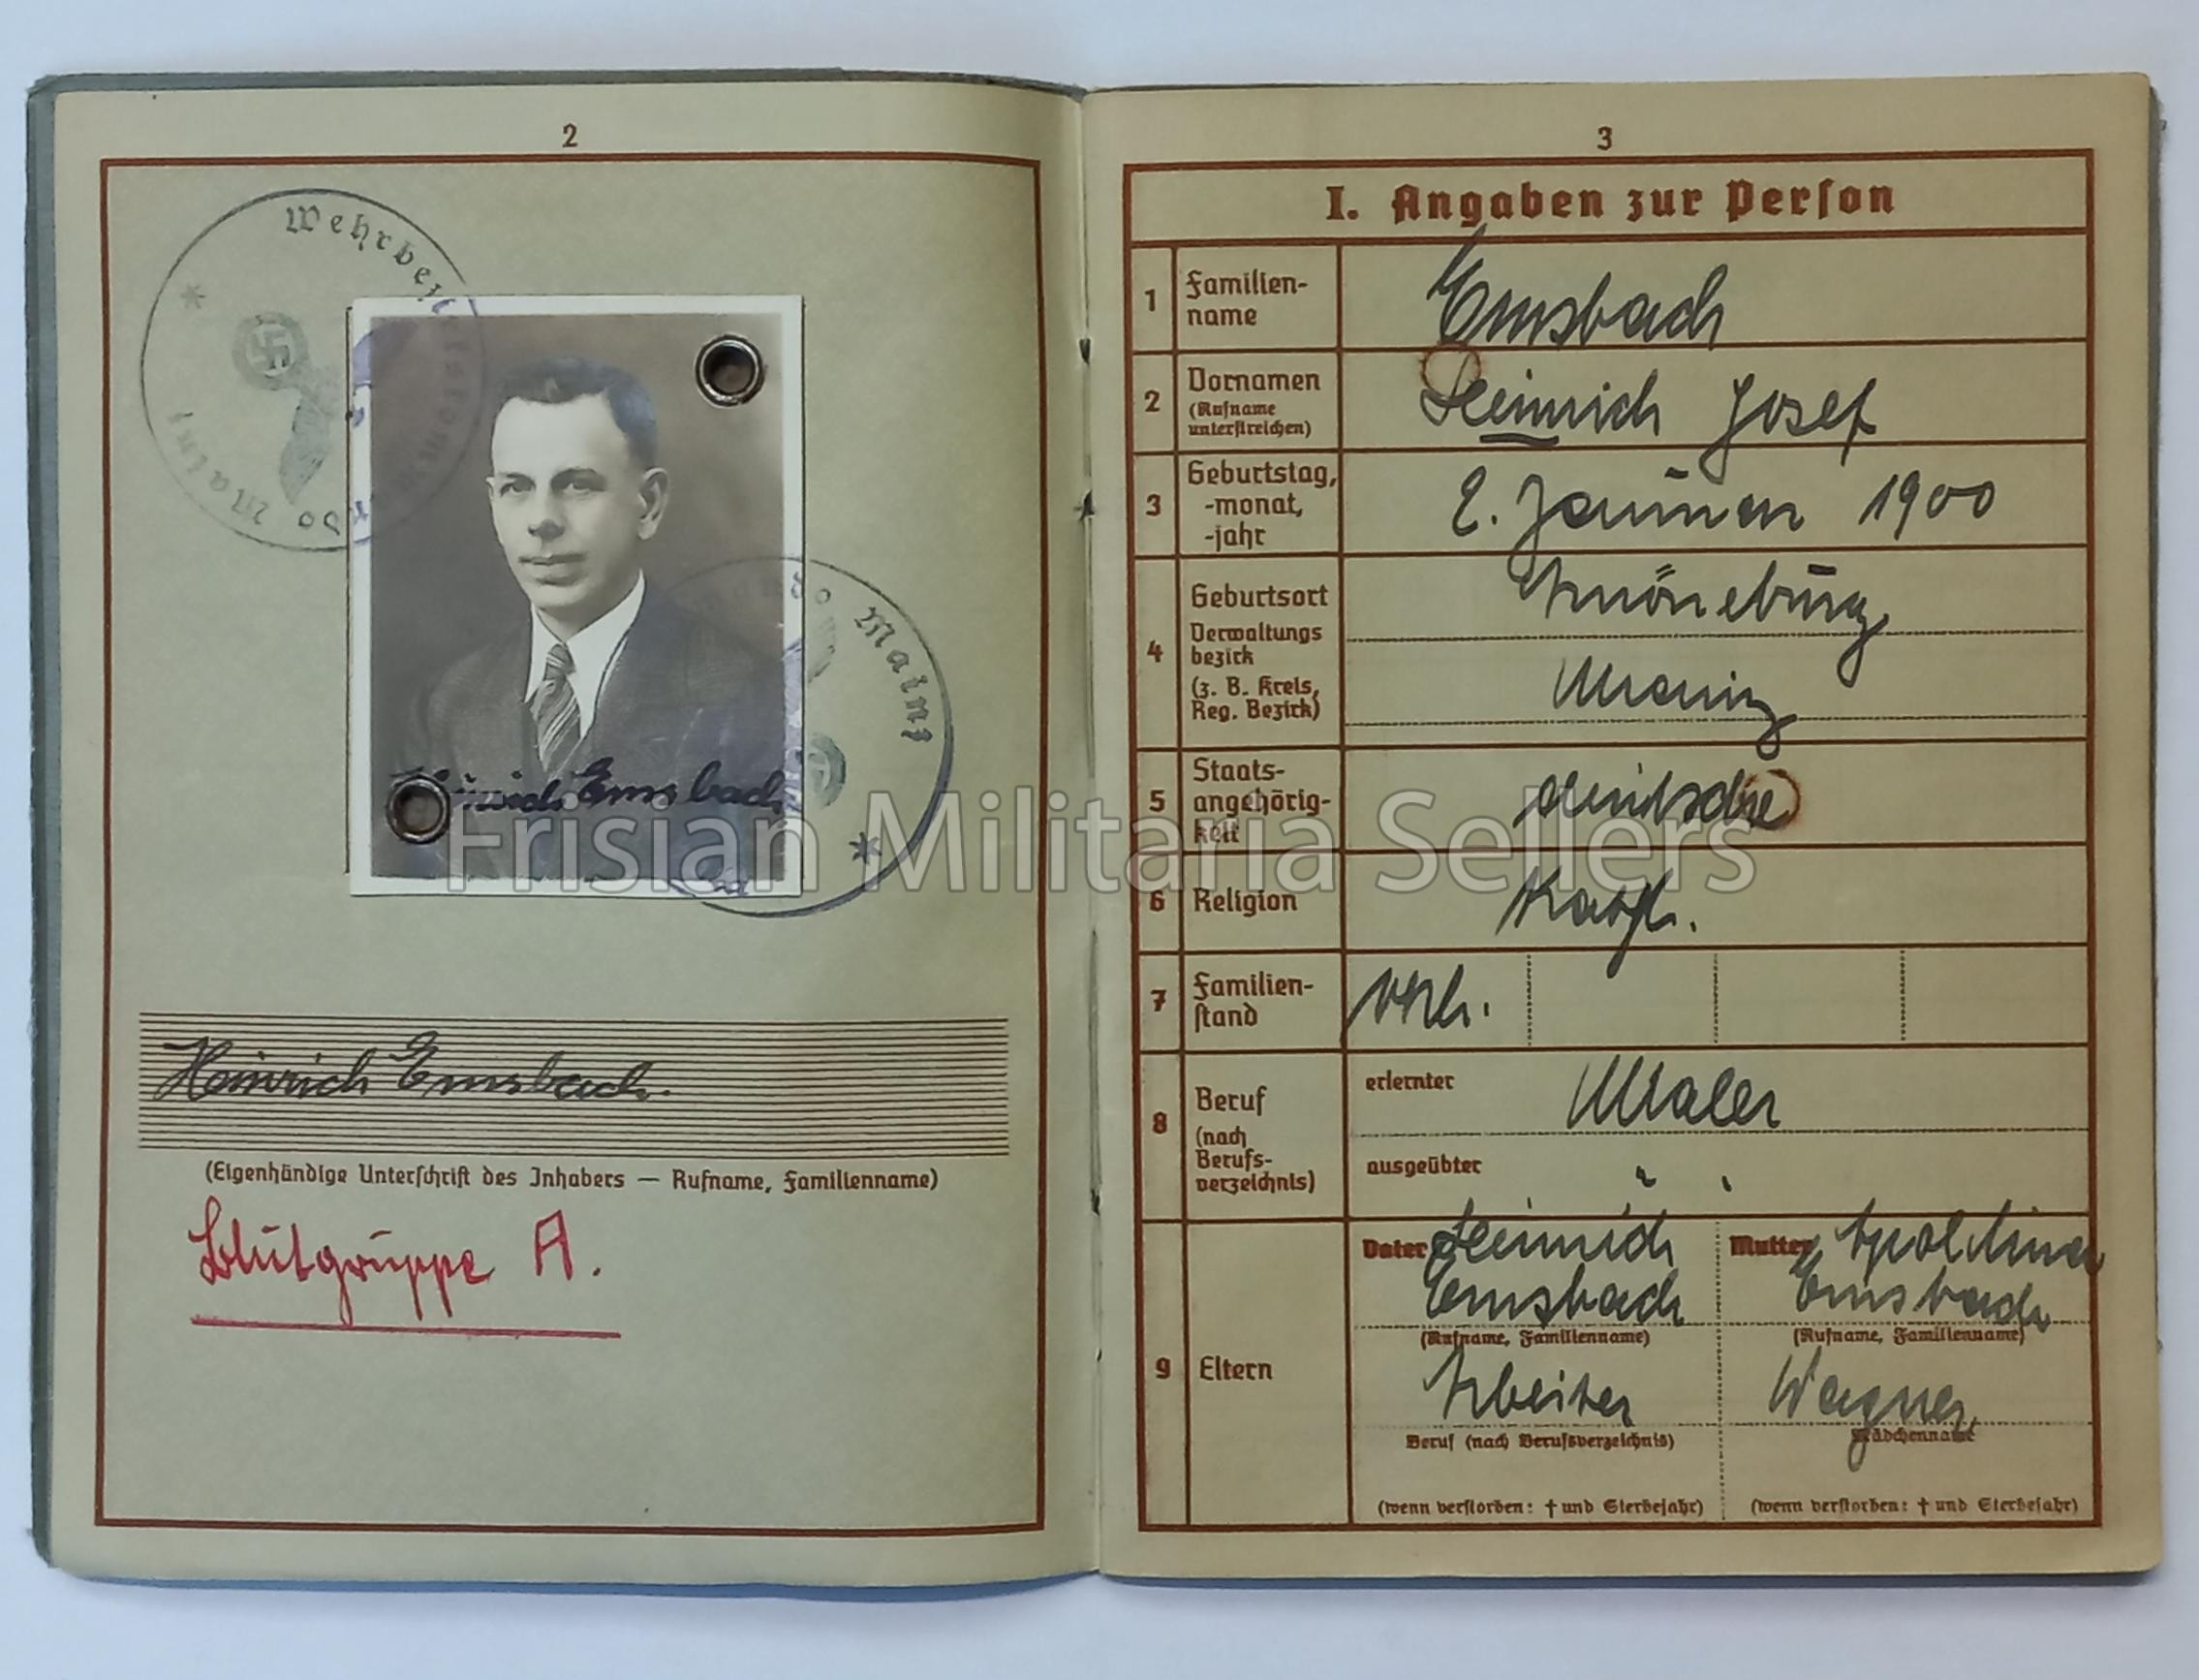 2
Wehrbezirkskommando Mainz
mando Mainz
Heinrich Emsbach
Heinrich Emsbach.
(Eigenhändige Unterschrift des Inhabers — Rufname, Familienname)
Blutgruppe A.
3
I. Angaben zur Person
1 Familien-
name
Emsbach
2 Vornamen
(Rufname
unterstreichen)
Heinrich Josef
3 Geburtstag,
-monat,
-jahr
2. Januar 1900
4 Geburtsort
Verwaltungs
bezirk
(z. B. Kreis,
Reg. Bezirk)
Mainz
5 Staats-
angehörig-
keit
deutsche
6 Religion
Kath.
7 Familien-
stand
verh.
8 Beruf
(nach
Berufs-
verzeichnis)
erlernter Maler
ausgeübter "
9 Eltern
Vater Heinrich
Emsbach
(Rufname, Familienname)
Arbeiter
Beruf (nach Berufsverzeichnis)
(wenn verstorben: † und Sterbejahr)
Mutter Apollonia
Emsbach
(Rufname, Familienname)
Wagner
Mädchenname
(wenn verstorben: † und Sterbejahr)
Frisian Militaria Sellers